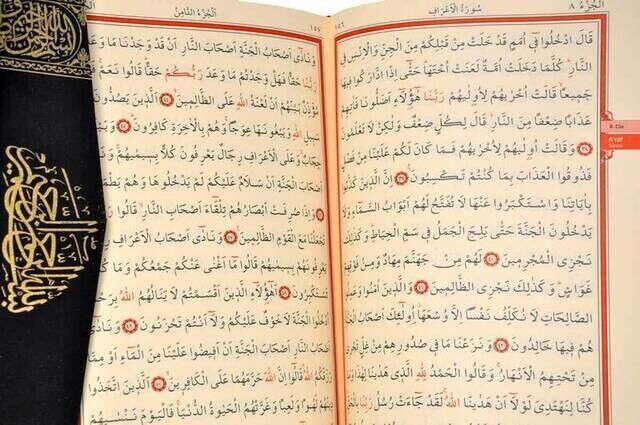 اَلْجُزْءُ ٨
سُورَةُ الْاَعْرَافِ
قَالَ ادْخُلُوا فٓي اُمَمٍ قَدْ خَلَتْ مِنْ قَبْلِكُمْ مِنَ الْجِنِّ وَالْاِنْسِ فِي
النَّارِ كُلَّمَا دَخَلَتْ اُمَّةٌ لَعَنَتْ اُخْتَهَا حَتّٰٓى اِذَا ادَّارَكُوا فٖيهَا
جَمٖيعًا قَالَتْ اُخْرٰيهُمْ لِاُو۫لٰيهُمْ رَبَّنَا هٰٓؤُ۬لَٓاءِ اَضَلُّونَا فَاٰتِهِمْ
عَذَابًا ضِعْفًا مِنَ النَّارِ قَالَ لِكُلٍّ ضِعْفٌ وَلٰكِنْ لَا تَعْلَمُونَ
﴿٣٨﴾ وَقَالَتْ اُو۫لٰيهُمْ لِاُخْرٰيهُمْ فَمَا كَانَ لَكُمْ عَلَيْنَا مِنْ فَضْلٍ
فَذُوقُوا الْعَذَابَ بِمَا كُنْتُمْ تَكْسِبُونَ ﴿٣٩﴾ اِنَّ الَّذٖينَ كَذَّبُوا
بِاٰيَاتِنَا وَاسْتَكْبَرُوا عَنْهَا لَا تُفَتَّحُ لَهُمْ اَبْوَابُ السَّمَٓاءِ وَلَا
يَدْخُلُونَ الْجَنَّةَ حَتّٰى يَلِجَ الْجَمَلُ فٖي سَمِّ الْخِيَاطِ وَكَذٰلِكَ
نَجْزِي الْمُجْرِمٖينَ ﴿٤٠﴾ لَهُمْ مِنْ جَهَنَّمَ مِهَادٌ وَمِنْ فَوْقِهِمْ
غَوَاشٍ وَكَذٰلِكَ نَجْزِي الظَّالِمٖينَ ﴿٤١﴾ وَالَّذٖينَ اٰمَنُوا وَعَمِلُوا
الصَّالِحَاتِ لَا نُكَلِّفُ نَفْسًا اِلَّا وُسْعَهَا اُو۬لٰٓئِكَ اَصْحَابُ الْجَنَّةِ
هُمْ فٖيهَا خَالِدُونَ ﴿٤٢﴾ وَنَزَعْنَا مَا فٖي صُدُورِهِمْ مِنْ غِلٍّ تَجْرٖي
مِنْ تَحْتِهِمُ الْاَنْهَارُ وَقَالُوا الْحَمْدُ لِلّٰهِ الَّذٖي هَدٰينَا لِهٰذَا وَمَا
كُنَّا لِنَهْتَدِيَ لَوْلَٓا اَنْ هَدٰينَا اللّٰهُ لَقَدْ جَٓاءَتْ رُسُلُ رَبِّنَا بِالْحَقِّ
8. Cüz
A'râf
Sûresi
اَلْجُزْءُ الثَّامِنُ
وَنَادٰٓى اَصْحَابُ الْجَنَّةِ اَصْحَابَ النَّارِ اَنْ قَدْ وَجَدْنَا مَا وَعَدَنَا
رَبُّنَا حَقًّا فَهَلْ وَجَدْتُمْ مَا وَعَدَ رَبُّكُمْ حَقًّا قَالُوا نَعَمْ
مُؤَذِّنٌ بَيْنَهُمْ اَنْ لَعْنَةُ اللّٰهِ عَلَى الظَّالِمٖينَ ﴿٤٤﴾ اَلَّذٖينَ يَصُدُّونَ
سَبٖيلِ اللّٰهِ وَيَبْغُونَهَا عِوَجًا وَهُمْ بِالْاٰخِرَةِ كَافِرُونَ ﴿٤٥﴾
حِجَابٌ وَعَلَى الْاَعْرَافِ رِجَالٌ يَعْرِفُونَ كُلًّا بِسٖيمٰيهُمْ وَنَادَوْا
اَصْحَابَ الْجَنَّةِ اَنْ سَلَامٌ عَلَيْكُمْ لَمْ يَدْخُلُوهَا وَهُمْ يَطْمَعُونَ
﴿٤٦﴾ وَاِذَا صُرِفَتْ اَبْصَارُهُمْ تِلْقَٓاءَ اَصْحَابِ النَّارِ قَالُوا رَبَّنَا
تَجْعَلْنَا مَعَ الْقَوْمِ الظَّالِمٖينَ ﴿٤٧﴾ وَنَادٰٓى اَصْحَابُ الْاَعْرَافِ
يَعْرِفُونَهُمْ بِسٖيمٰيهُمْ قَالُوا مَٓا اَغْنٰى عَنْكُمْ جَمْعُكُمْ وَمَا كُنْتُمْ
تَسْتَكْبِرُونَ ﴿٤٨﴾ اَهٰٓؤُ۬لَٓاءِ الَّذٖينَ اَقْسَمْتُمْ لَا يَنَالُهُمُ اللّٰهُ بِرَحْمَةٍ
اُدْخُلُوا الْجَنَّةَ لَا خَوْفٌ عَلَيْكُمْ وَلَٓا اَنْتُمْ تَحْزَنُونَ ﴿٤٩﴾ وَنَادٰٓى
اَصْحَابُ النَّارِ اَصْحَابَ الْجَنَّةِ اَنْ اَفٖيضُوا عَلَيْنَا مِنَ الْمَٓاءِ اَوْ مِمَّا
رَزَقَكُمُ اللّٰهُ قَالُٓوا اِنَّ اللّٰهَ حَرَّمَهُمَا عَلَى الْكَافِرٖينَ ﴿٥٠﴾ اَلَّذٖينَ اتَّخَذُوا
دٖينَهُمْ لَهْوًا وَلَعِبًا وَغَرَّتْهُمُ الْحَيٰوةُ الدُّنْيَا فَالْيَوْمَ نَنْسٰيهُمْ